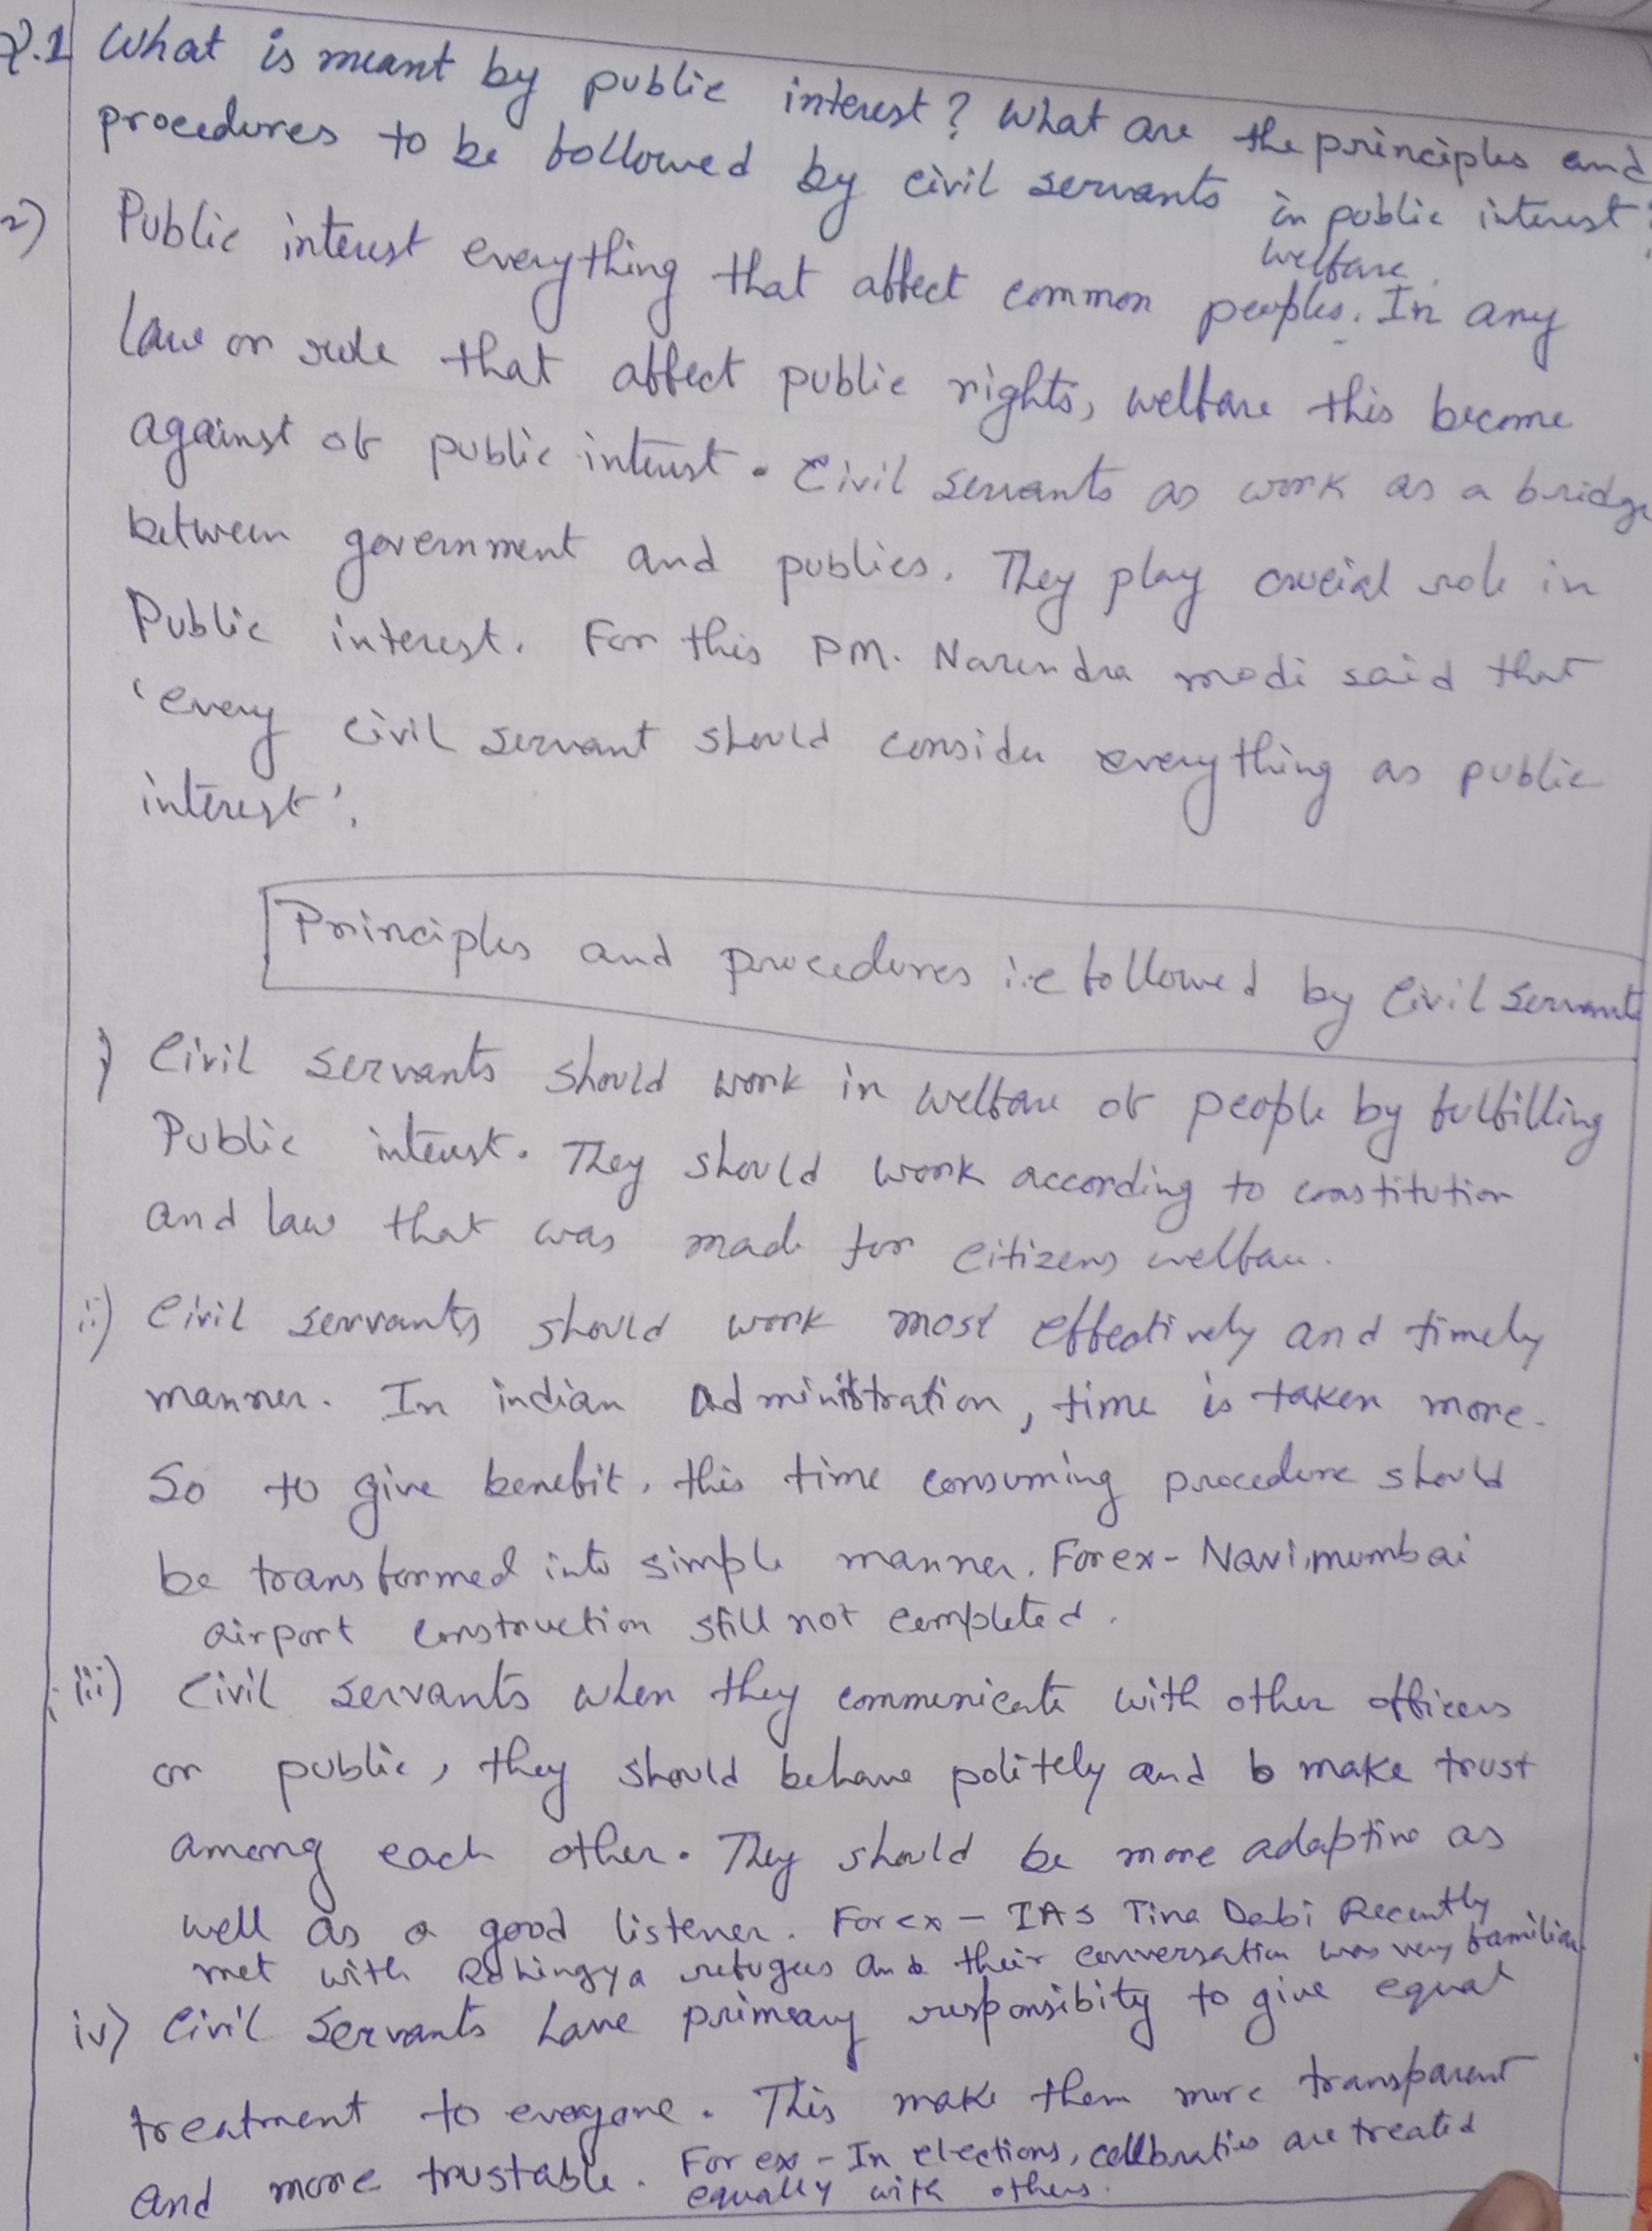 Q.1 What is meant by public interest? What are the principles and
procedures to be followed by civil servants in public interest?
2) Public interest everything that affect common peoples welfare. In any
law or rule that affect public rights, welfare this become
against of public interest. Civil servants as work as a bridge
between government and publics. They play crucial role in
Public interest. For this PM. Narendra modi said that
'every civil servant should consider everything as public
interest'.
Principles and procedures i.e followed by Civil Servants
i) Civil servants should work in welfare of people by fulfilling
Public interest. They should work according to constitution
and law that was made for citizens welfare.
ii) Civil servants should work most effectively and timely
manner. In indian Administration, time is taken more.
So to give benefit, this time consuming procedure should
be transformed into simple manner. For ex- Navi mumbai
airport construction still not completed.
iii) Civil servants when they communicate with other officers
or public, they should behave politely and b make trust
among each other. They should be more adaptive as
well as a good listener. For ex - IAS Tina Dabi Recently
met with Rohingya refugees and their conversation was very familiar
iv) Civil Servants have primary responsibity to give equal
treatment to everyone. This make them more transparent
and more trustable. For ex - In elections, cellbraties are treated
equally with others.